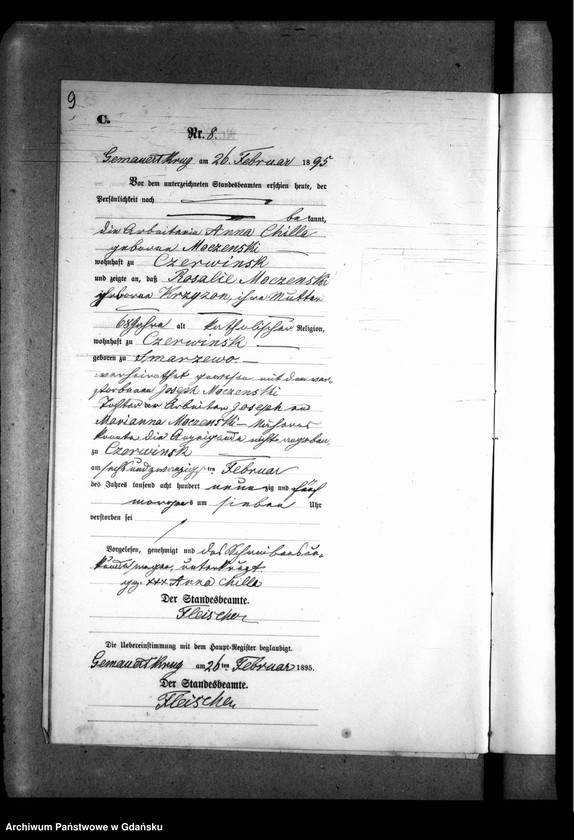 9
C.
Nr. 8.
Gemauert Krug am 26. Februar 1895
Vor dem unterzeichneten Standesbeamten erschien heute, der
Persönlichkeit nach
bekannt,
die Arbeiterin Anna Chilla
geborene Moczenski
wohnhaft zu Czerwinsk
und zeigte an, daß Rosalie Moczenski
geborene Krzyzon, ihre Mutter
68 Jahre alt katholischer Religion,
wohnhaft zu Czerwinsk
geboren zu Smarzewo.
verheirathet gewesen mit dem ver-
storbenen Joseph Moczenski
Tochter der Arbeiter Joseph und
Marianna Moczenski – Näheres
konnte die Anzeigende nicht angeben
zu Czerwinsk
am sechsundzwanzigsten Februar
des Jahres tausend acht hundert neunzig und fünf
morgens um sieben Uhr
verstorben sei
Vorgelesen, genehmigt und des Schreibensun-
kunde wegen, unterkreuzt.
gez. xxx Anna Chilla
Der Standesbeamte.
Fleischer
Die Uebereinstimmung mit dem Haupt-Register beglaubigt.
Gemauert Krug am 26ten Februar 1895.
Der Standesbeamte.
Fleischer
Archiwum Państwowe w Gdańsku